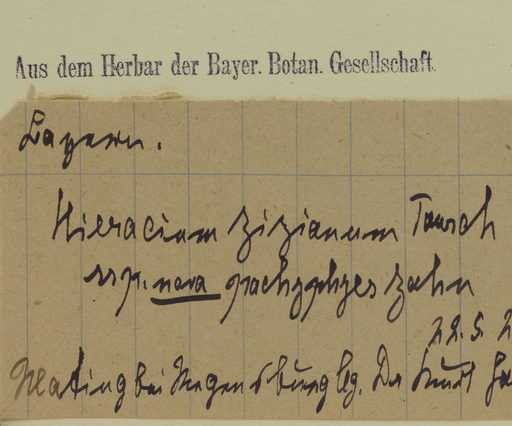 Aus dem Herbar der Bayer. Botan. Gesellschaft.
Bayern.
Hieracium zizianum Tausch
ssp. nova pachyphyes Zahn
22.5. 2
Matting bei Regensburg lg. Dr